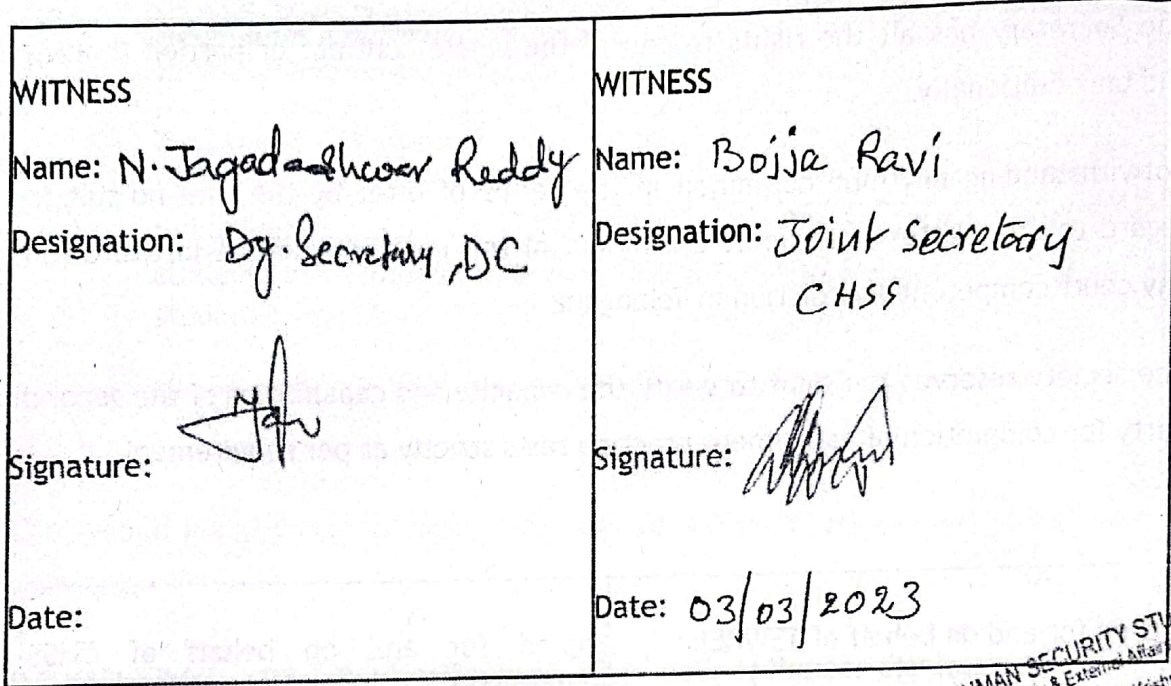 WITNESS
Name: N. Jagadeshwar Reddy
Designation: Dy Secretary, DC
Signature:
Date:
WITNESS
Name: Bojja Ravi
Designation: Joint Secretary
CHSS
Signature:
Date: 03/03/2023
HUMAN SECURITY
& External Affairs